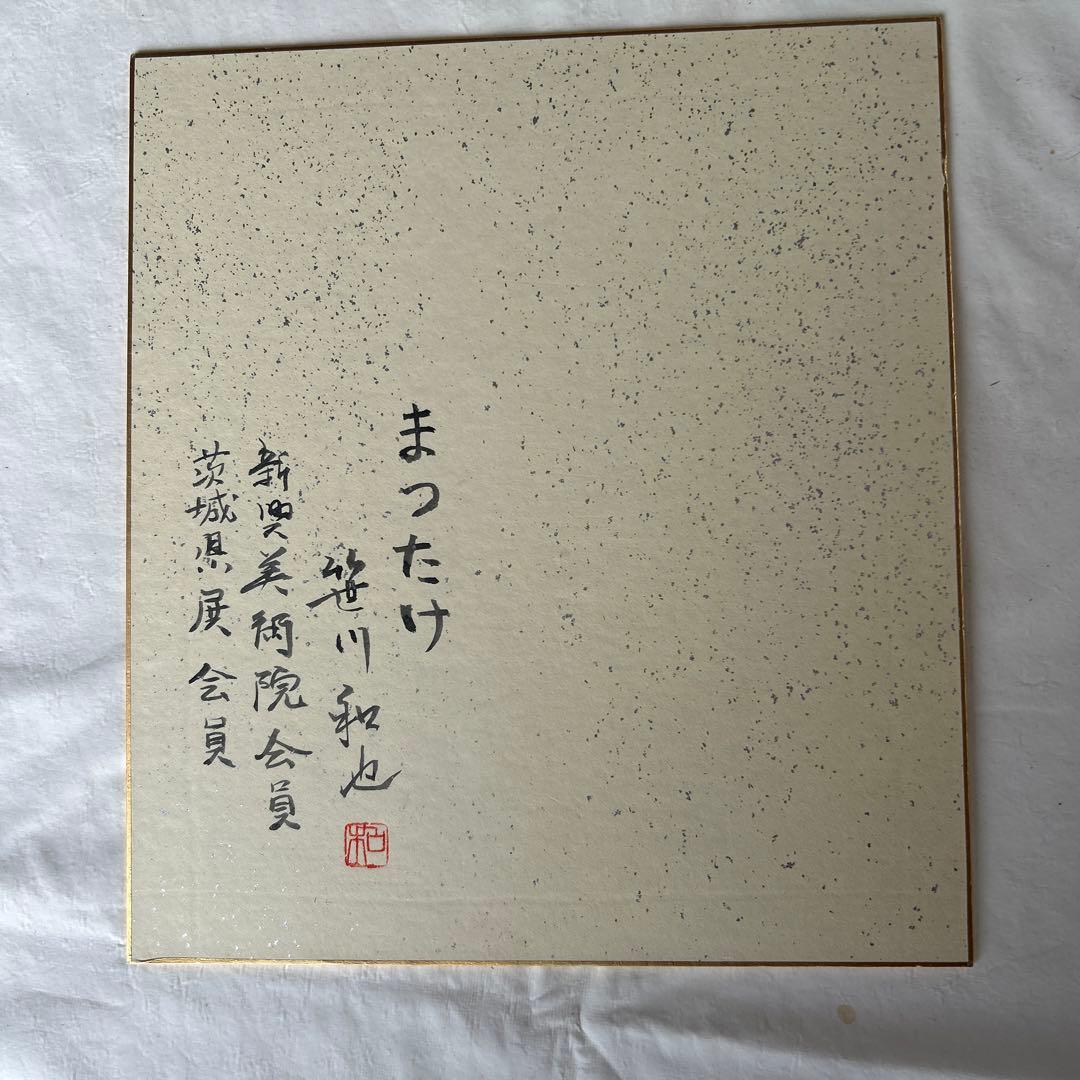 まつたけ
笹川和也
和
新興美術院会員
茨城県展会員